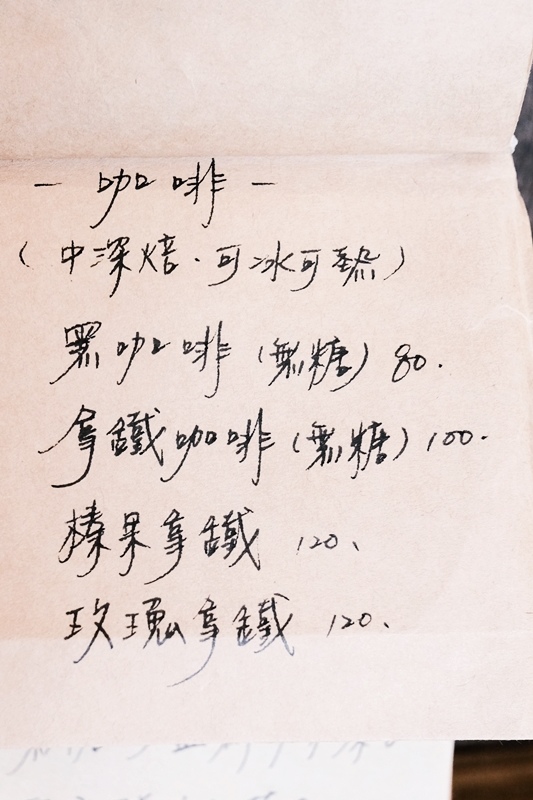 - 咖啡 -
(中深焙.可冰可熱)
黑咖啡(無糖) 80.
拿鐵咖啡(無糖) 100.
榛果拿鐵 120、
玫瑰拿鐵 120、